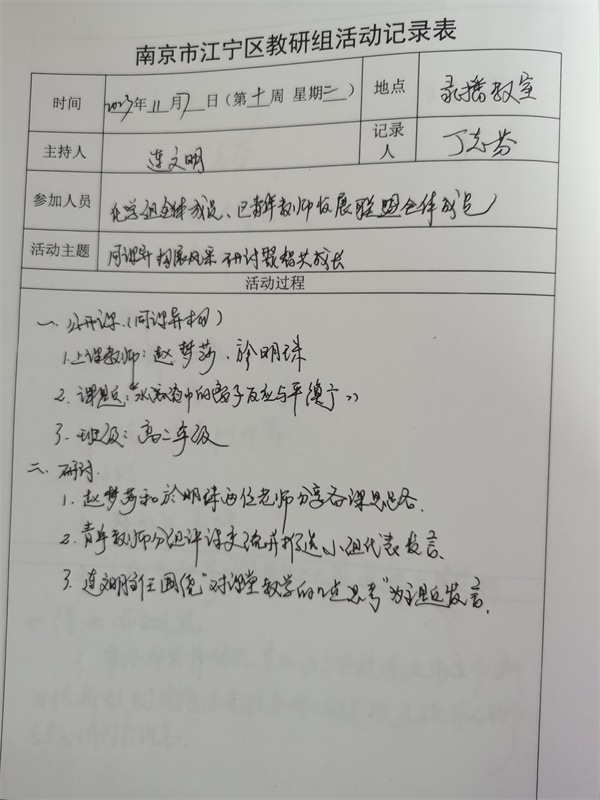 南京市江宁区教研组活动记录表
时间 2023年11月7日（第十周 星期二） 地点 录播教室
主持人 连文明 记录人 丁志芬
参加人员 化学组全体成员、区青年教师发展联盟全体成员
活动主题 同课异构展风采 研讨聚智共成长
活动过程
一、公开课（同课异构）
1.上课教师：赵梦莎、於明珠
2.课题：“水溶液中的离子反应与平衡”
3.班级：高二年级
二、研讨.
1.赵梦莎和於明珠两位老师分享备课思路.
2.青年教师分组评课交流并推选小组代表发言.
3.连文明主任围绕“对课堂教学的几点思考”为主题发言.